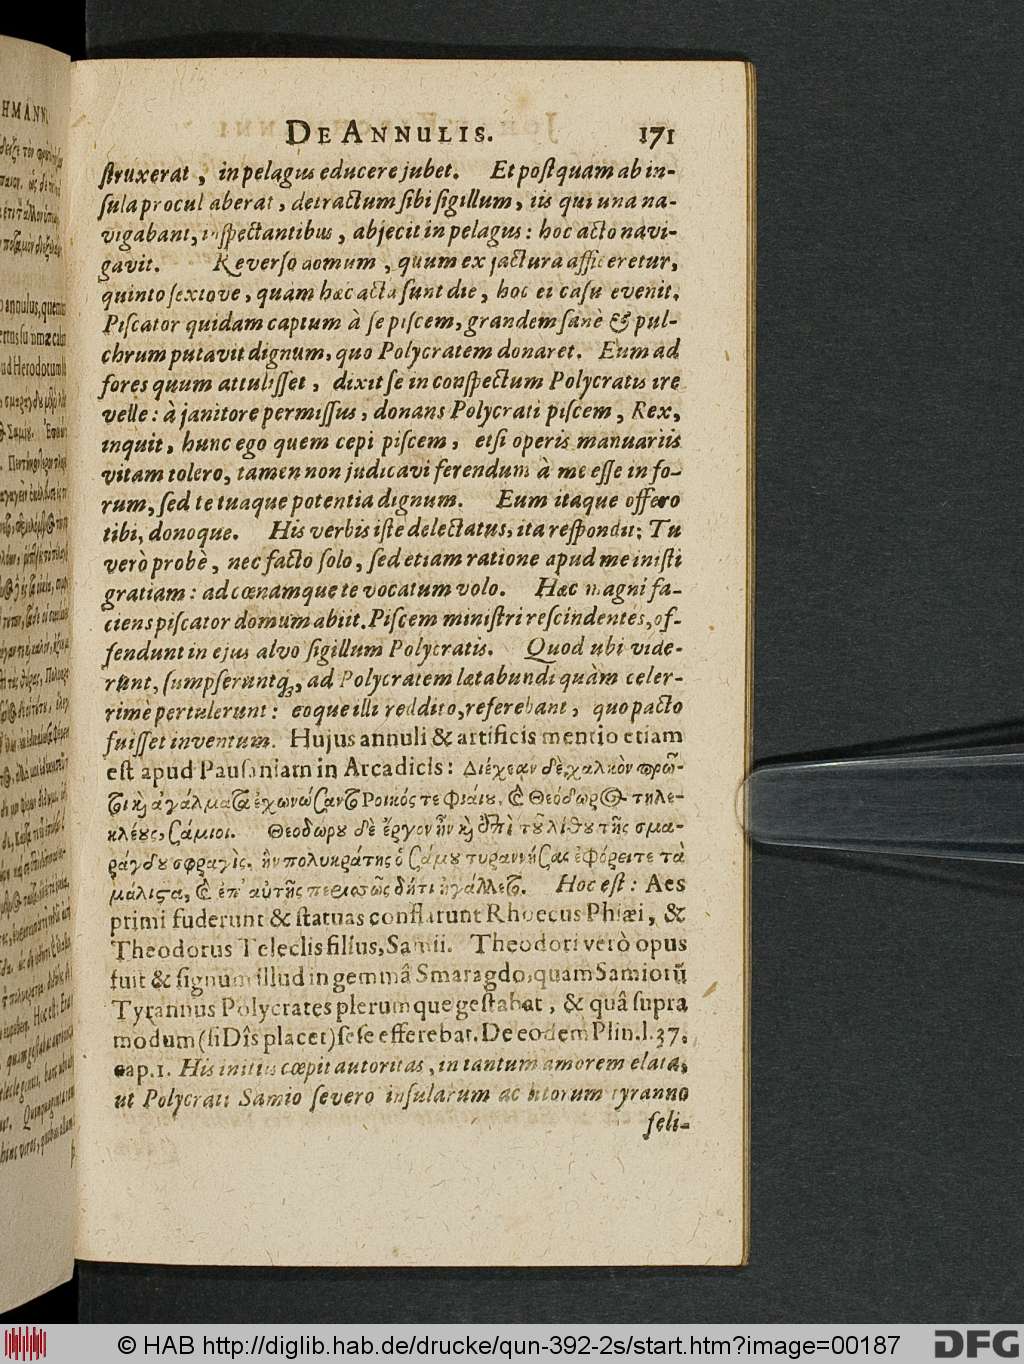 DE ANNULIS. 171
struxerat, in pelagus educere jubet. Et postquam ab in-
sula procul aberat, detractum sibi sigillum, iis qui una na-
vigabant, inspectantibus, abjecit in pelagus: hoc acto navi-
gavit. Reverso domum, quum ex jactura afficeretur,
quinto sextove, quàm hæc acta sunt die, hoc ei casu evenit.
Piscator quidam captum à se piscem, grandem sanè & pul-
chrum putavit dignum, quo Polycratem donaret. Eum ad
fores quum attulisset, dixit se in conspectum Polycratis ire
velle: à janitore permissus, donans Polycrati piscem, Rex,
inquit, hunc ego quem cepi piscem, etsi operis manuariis
vitam tolero, tamen non judicavi ferendum à me esse in fo-
rum, sed te tuaque potentia dignum. Eum itaque offero
tibi, donoque. His verbis iste delectatus, ita respondit: Tu
verò probè, nec facto solo, sed etiam ratione apud me inisti
gratiam: ad cœnamque te vocatum volo. Hæc magni fa-
ciens piscator domum abiit. Piscem ministri rescindentes, of-
fendunt in ejus alvo sigillum Polycratis. Quod ubi vide-
runt, sumpseruntq;, ad Polycratem lætabundi quàm celer-
rimè pertulerunt: eoque illi reddito, referebant, quo pacto
fuisset inventum. Hujus annuli & artificis mentio etiam
est apud Pausaniam in Arcadicis: Διέχεαν δὲ χαλκὸν πρῶ-
τοι κỳ ἀγάλματα ἐχωνεύσαντο Ροικός τε Φιλαίου, καὶ Θεόδωρος τηλε-
κλέους, σάμιοι. Θεοδώρου δὲ ἔργον ἦν κỳ ἐπὶ τοῦ λίθου τῆς σμα-
ράγδου σφραγὶς. ἣν πολυκράτης ὁ σάμου τυραννήσας ἐφόρει τε τὰ
μάλιστα, καὶ ἐπ' αὐτῆς περισσῶς δή τι ἠγάλλετο. Hoc est: Aes
primi fuderunt & statuas conflarunt Rhoecus Phiæi, &
Theodorus Teleclis filius, Samii. Theodori verò opus
fuit & signum illud in gemmâ Smaragdo, quam Samiorū
Tyrannus Polycrates plerumque gestabat, & quâ supra
modum (si Dîs placet) sese efferebat. De eodem Plin. l. 37.
cap. 1. His initiis cœpit autoritas, in tantum amorem elata,
ut Polycrati Samio severo insularum ac litorum tyranno
feli-
© HAB http://diglib.hab.de/drucke/qun-392-2s/start.htm?image=00187
DFG